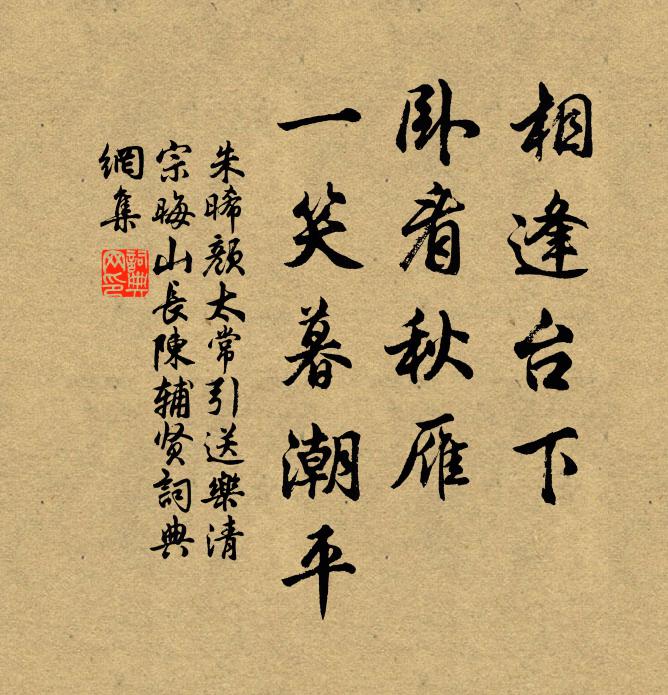 相逢台下
卧看秋雁
一笑暮潮平
朱晞颜太常引送樂清
宗晦山長陳辅贤詞典
網集
詞典
网印